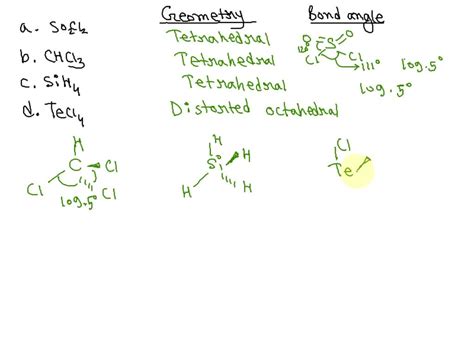 Geometry Bond angle
a. SO2Cl2 Tetrahedral
b. CHCl3 Tetrahedral 109.5°
c. SiH4 Tetrahedral 109.5°
d. TeCl4 Distorted octahedral
O S O
120° Cl Cl 111°
H
C Cl
Cl Cl
109.5°
H
Si H
H H
Cl
Te